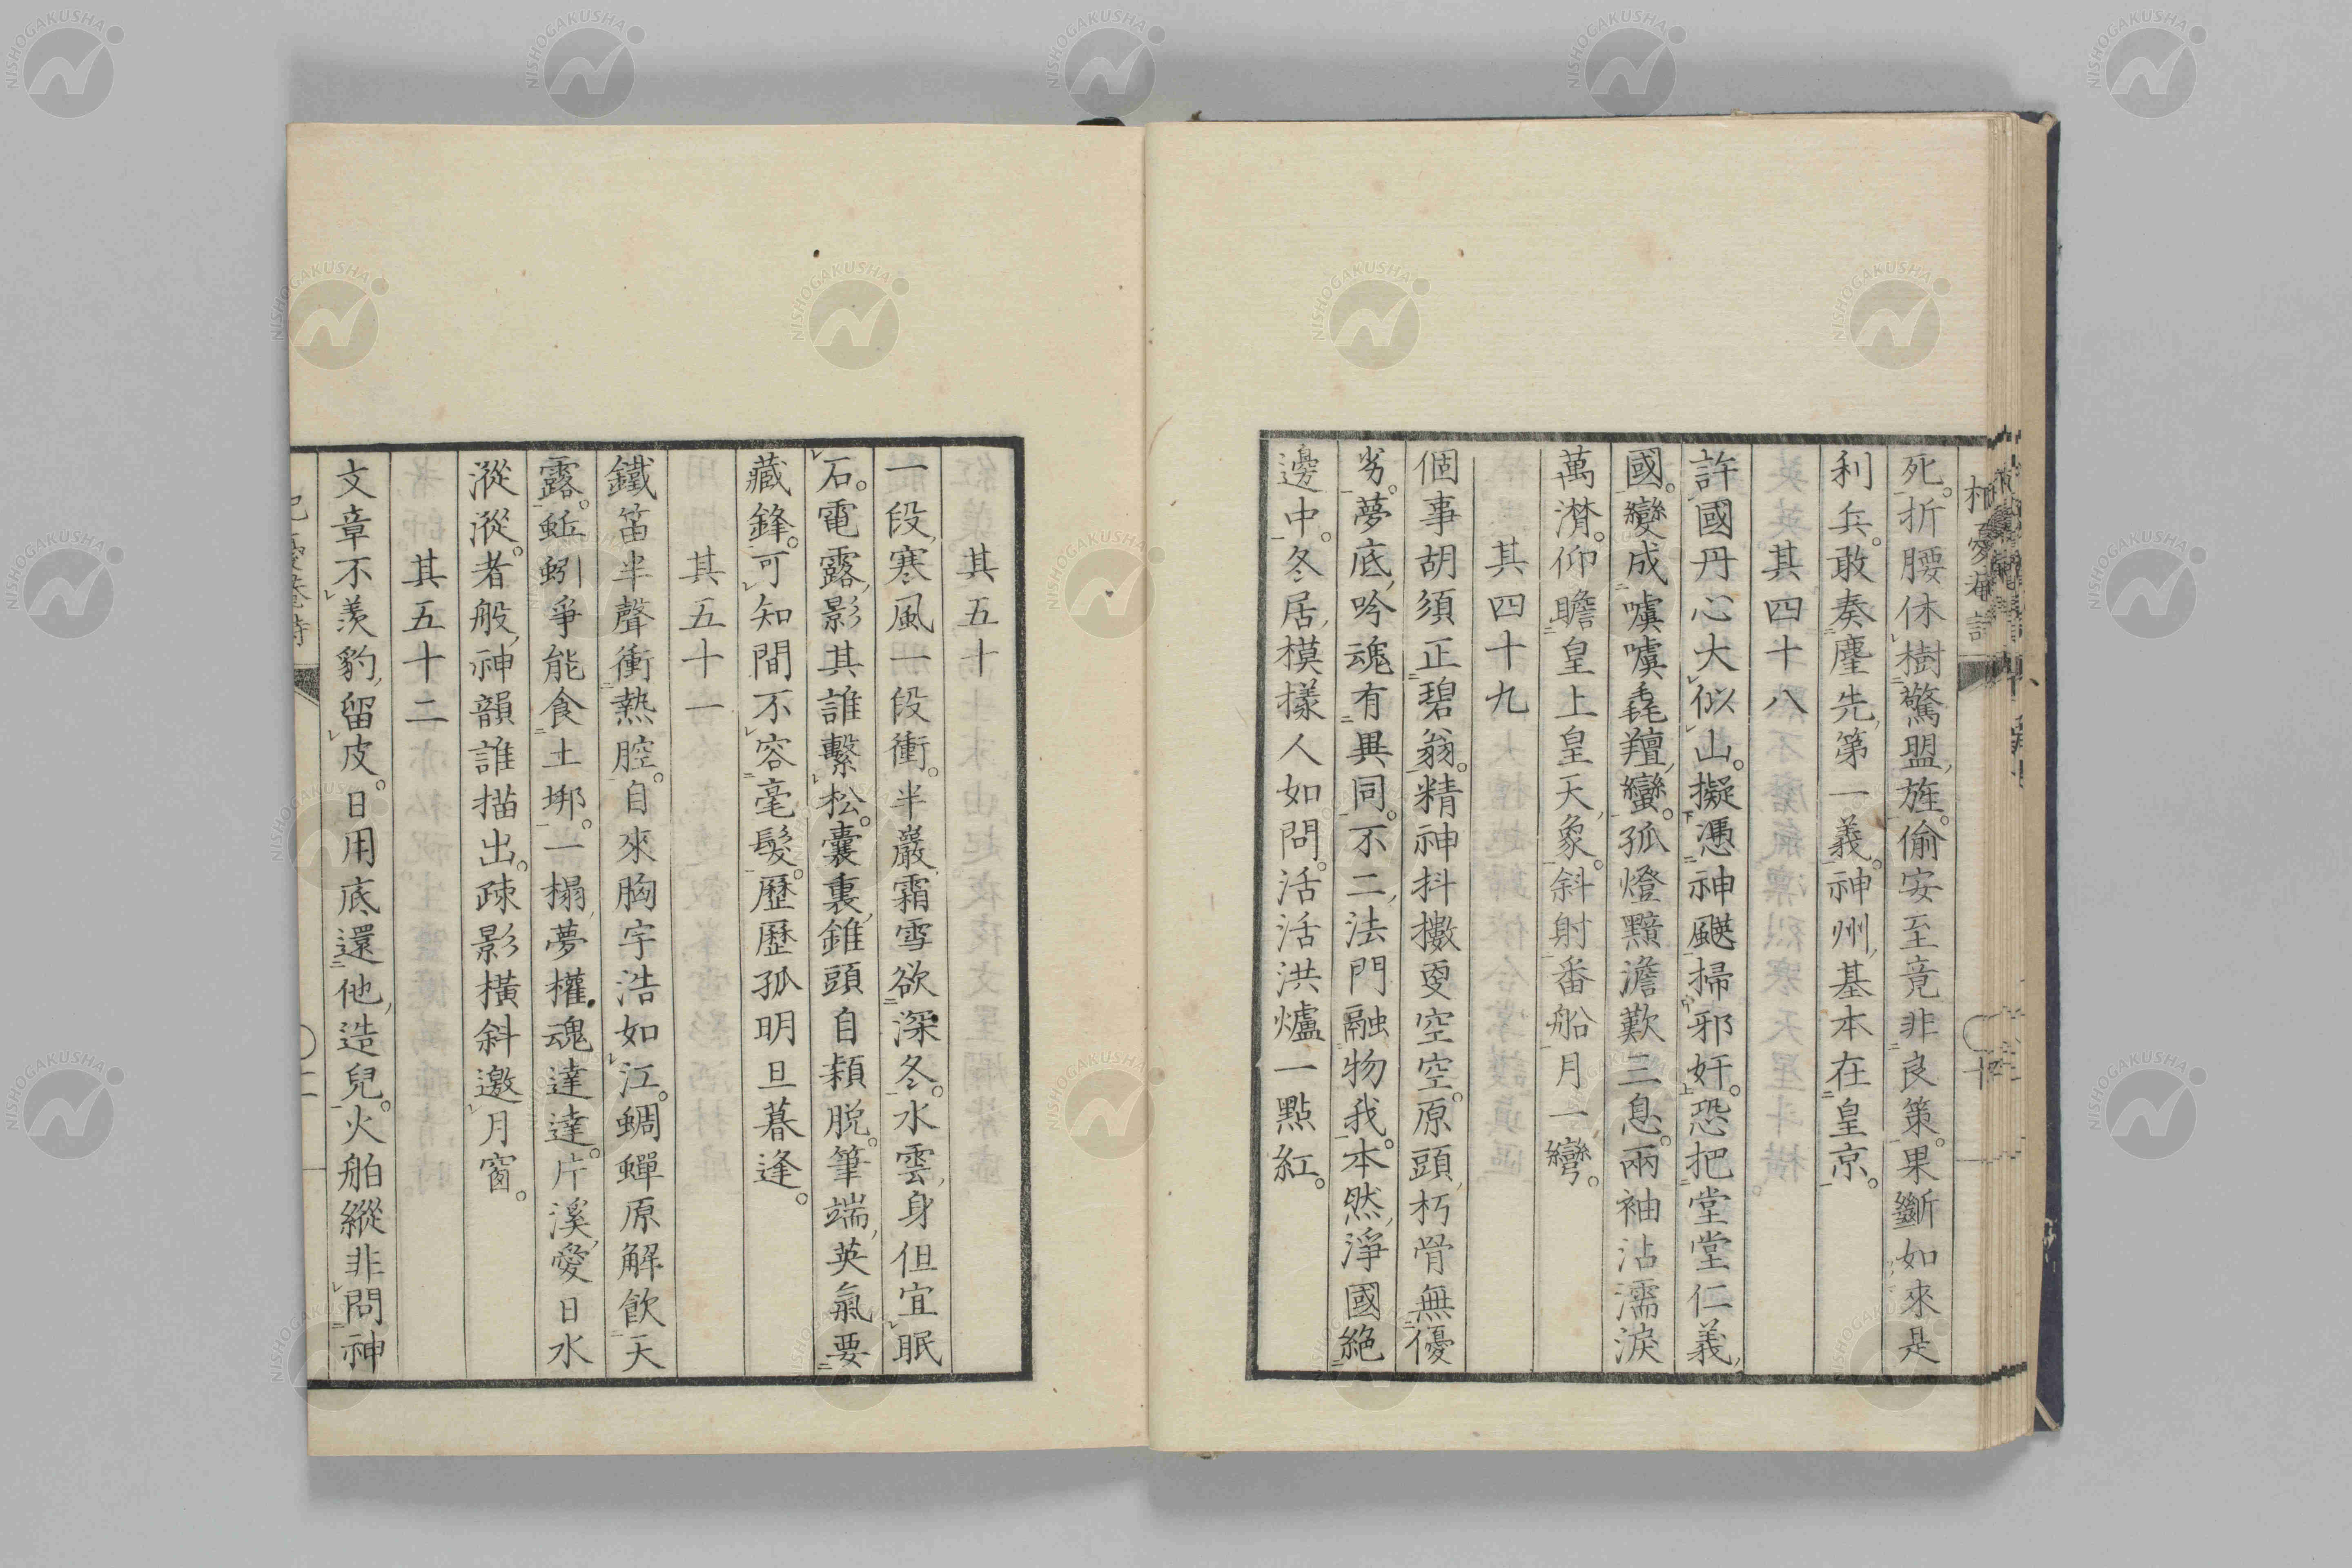 死。折腰休樹驚盟旌。偷安至竟非良策。果斷如來是
利兵。敢奏塵先第一義。神州基本在皇京。
其四十八
許國丹心大似山。擬憑神颶掃邪奸。恐把堂堂仁義
國。變成嘑嘑毳羶蠻。孤燈黯澹歎三息。兩袖沾濡淚
萬潸。仰瞻皇上皇天象。斜射番船月一彎。
其四十九
個事胡須正碧翁。精神抖擻更空空。原頭朽骨無優
劣。夢底吟魂有異同。不二法門融物我。本然淨國絕
邊中。冬居模樣人如問。活活洪爐一點紅。
其五十
一段寒風一段衝。半巖霜雪欲深冬。水雲身但宜眠
石。電露影其誰繫松。囊裏錐頭自穎脫。筆端英氣要
藏鋒。可知間不容毫髮。歷歷孤明旦暮逢。
其五十一
鐵笛半聲衝熱腔。自來胸宇浩如江。蜩蟬原解飲天
露。蚯蚓爭能食土埲。一榻夢權魂達達。片溪愛日水
淞淞。者般神韻誰描出。疎影橫斜邀月窗。
其五十二
文章不羨豹留皮。日用底還他造兒。火舶縱非問神